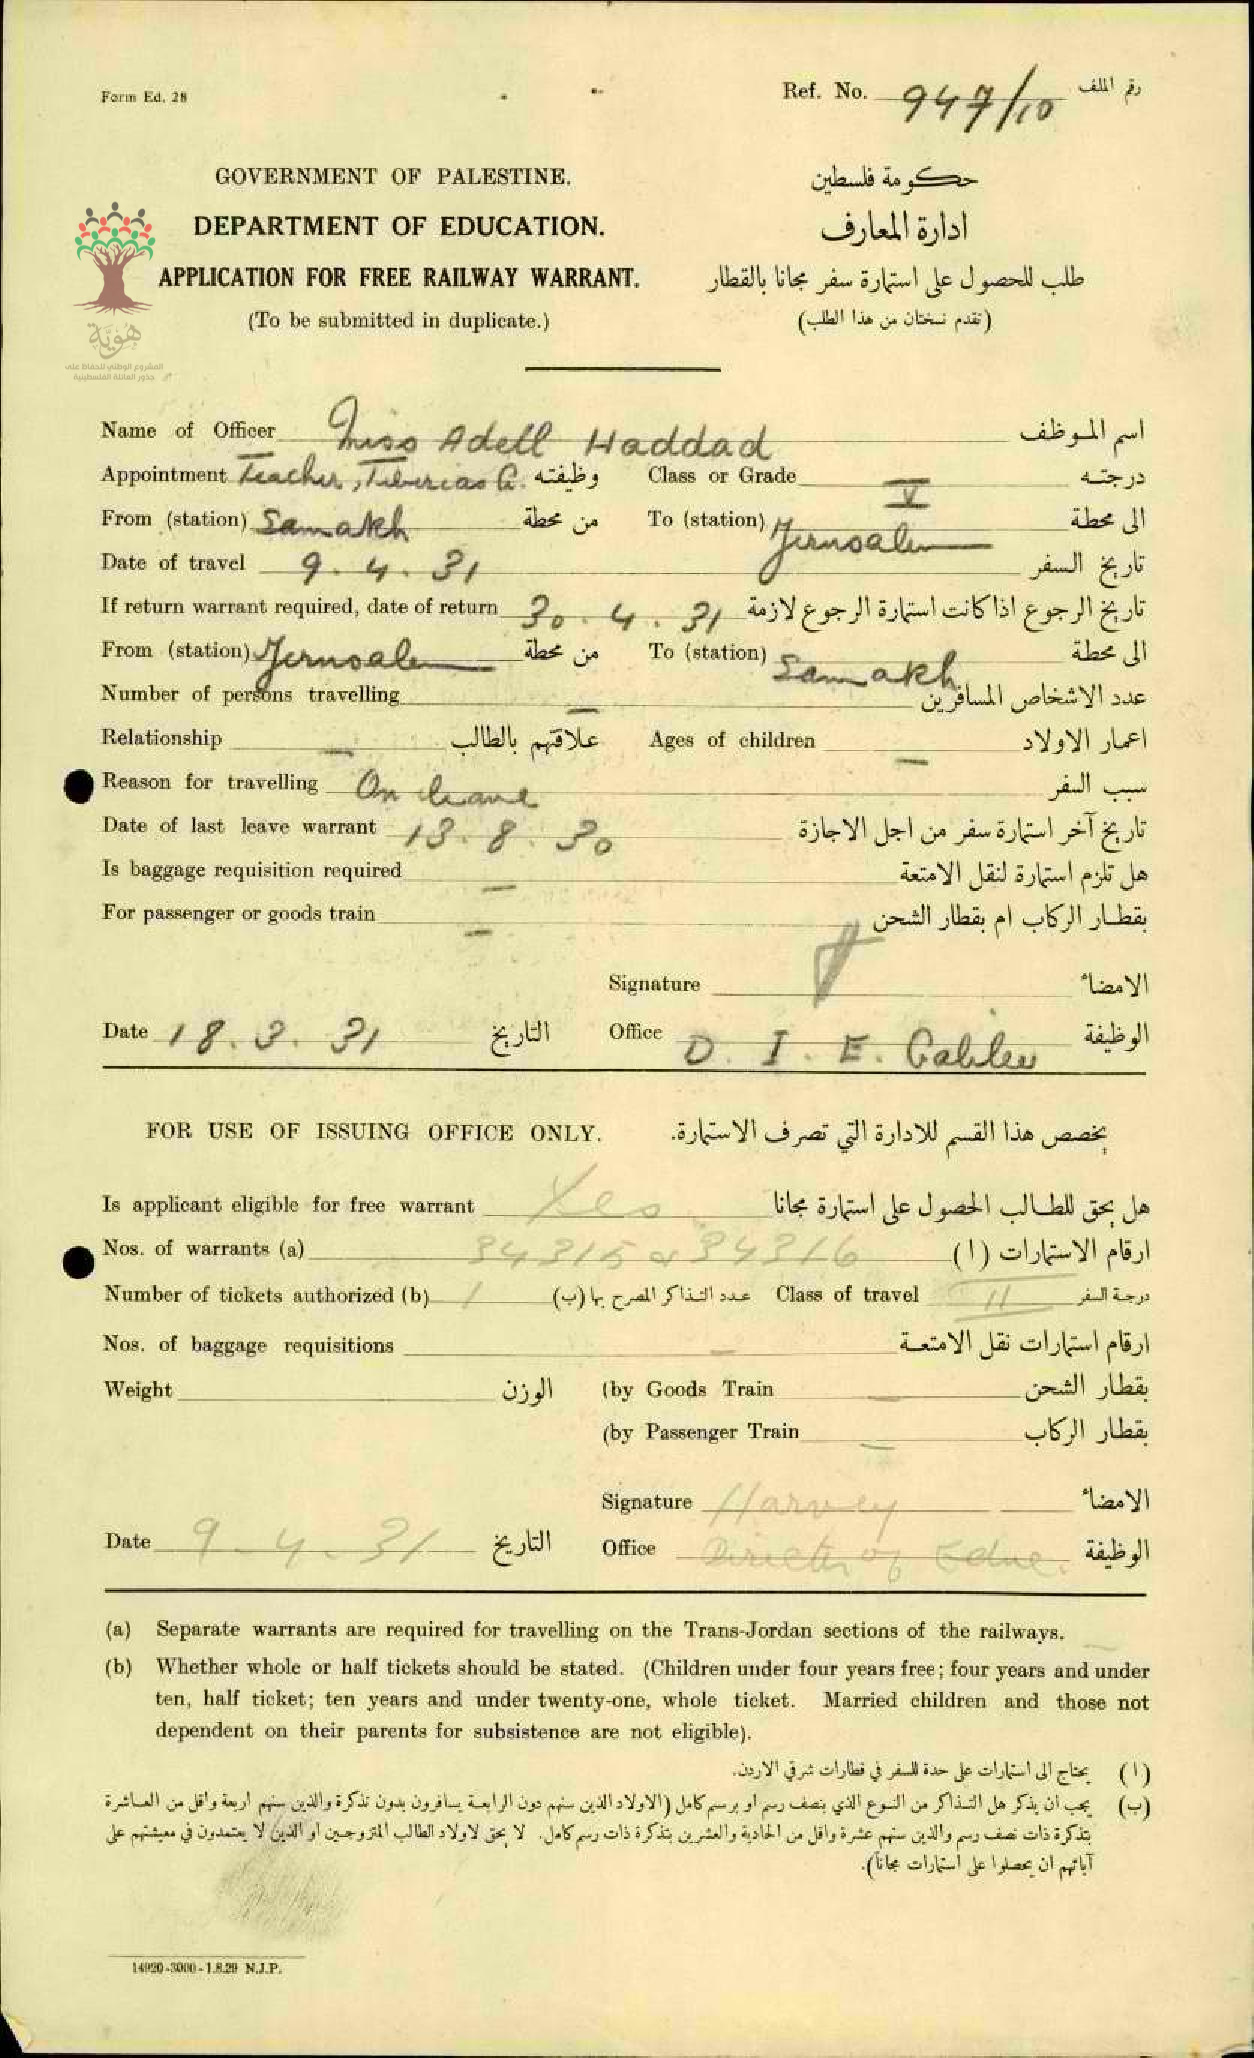 Form Ed. 28
Ref. No. 947/10 رقم الملف
GOVERNMENT OF PALESTINE. حكومة فلسطين
DEPARTMENT OF EDUCATION. ادارة المعارف
APPLICATION FOR FREE RAILWAY WARRANT. طلب للحصول على استمارة سفر مجانا بالقطار
(To be submitted in duplicate.) (تقدم نسختان من هذا الطلب)
هوية
المشروع الوطني للحفاظ على
جذور العائلة الفلسطينية
Name of Officer Miss Adell Haddad اسم الموظف
Appointment Teacher, Tiberias G. وظيفته Class or Grade V درجته
From (station) Samakh من محطة To (station) Jerusalem الى محطة
Date of travel 9.4.31 تاريخ السفر
If return warrant required, date of return 30.4.31 تاريخ الرجوع اذا كانت استمارة الرجوع لازمة
From (station) Jerusalem من محطة To (station) Samakh الى محطة
Number of persons travelling — عدد الاشخاص المسافرين
Relationship — علاقتهم بالطالب Ages of children — اعمار الاولاد
Reason for travelling On leave سبب السفر
Date of last leave warrant 13.8.30 تاريخ آخر استمارة سفر من اجل الاجازة
Is baggage requisition required — هل تلزم استمارة لنقل الامتعة
For passenger or goods train — بقطار الركاب ام بقطار الشحن
Signature الامضاء
Date 18.3.31 التاريخ Office D. I. E. Galilee الوظيفة
FOR USE OF ISSUING OFFICE ONLY. يخصص هذا القسم للادارة التي تصرف الاستمارة.
Is applicant eligible for free warrant Yes. هل يحق للطالب الحصول على استمارة مجانا
Nos. of warrants (a) 34315 & 34316 ارقام الاستمارات (ا)
Number of tickets authorized (b) 1 عدد التذاكر المصرح بها (ب) Class of travel II درجة السفر
Nos. of baggage requisitions — ارقام استمارات نقل الامتعة
Weight الوزن (by Goods Train — بقطار الشحن
(by Passenger Train — بقطار الركاب
Signature Harvey الامضاء
Date 9.4.31 التاريخ Office Director of Educ. الوظيفة
(a) Separate warrants are required for travelling on the Trans-Jordan sections of the railways.
(b) Whether whole or half tickets should be stated. (Children under four years free; four years and under
ten, half ticket; ten years and under twenty-one, whole ticket. Married children and those not
dependent on their parents for subsistence are not eligible).
(ا) يحتاج الى استمارات على حدة للسفر في قطارات شرقي الاردن.
(ب) يجب ان يذكر هل التذاكر من النوع الذي بنصف رسم او برسم كامل (الاولاد الذين سنهم دون الرابعة يسافرون بدون تذكرة والذين سنهم اربعة واقل من العاشرة
بتذكرة ذات نصف رسم والذين سنهم عشرة واقل من الحادية والعشرين بتذكرة ذات رسم كامل. لا يحق لاولاد الطالب المتزوجين او الذين لا يعتمدون في معيشتهم على
آبائهم ان يحصلوا على استمارات مجاناً).
14920-3000-1.8.29 N.J.P.